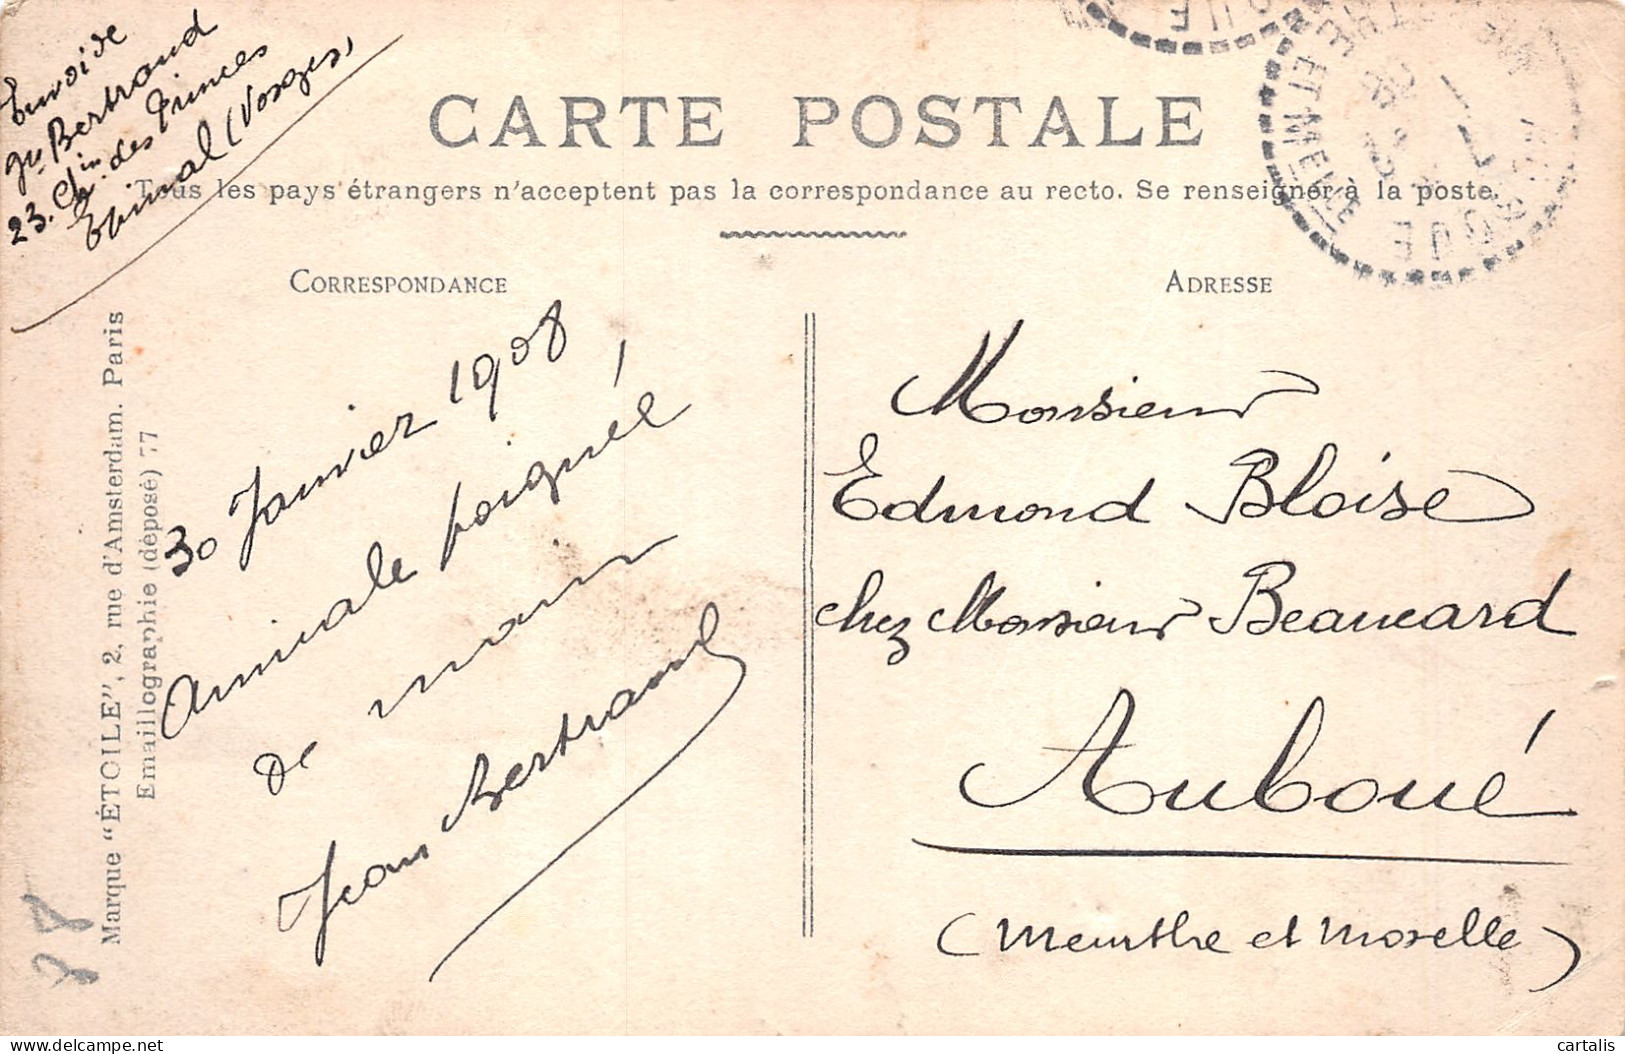 Envoi de
Jn Bertrand
23. Chin des Princes
Epinal (Vosges)
CARTE POSTALE
Tous les pays étrangers n'acceptent pas la correspondance au recto. Se renseigner à la poste.
CORRESPONDANCE
ADRESSE
30 Janvier 1908
Amicale poignée
de main
Jean Bertrand
Monsieur
Edmond Bloise
chez Monsieur Beaucard
Auboué
(Meurthe et Moselle)
Marque "ÉTOILE", 2, rue d'Amsterdam. Paris
Emaillographie (déposé) 77
ET MEUR
OUE
cartalis
delcampe.net